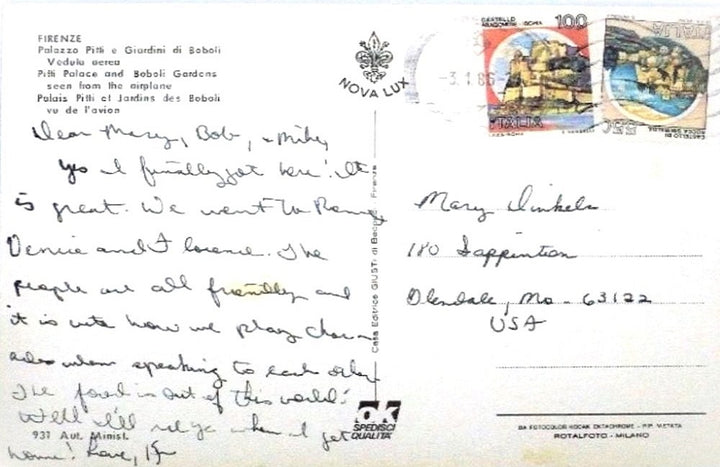 FIRENZE
Palazzo Pitti e Giardini di Boboli
Veduta aerea
Pitti Palace and Boboli Gardens
seen from the airplane
Palais Pitti et Jardins des Boboli
vu de l'avion
NOVA LUX
-3.1.86
CASTELLO
ARAGONESE - ISCHIA
100
ITALIA
ITALIA
CASTELLO DI
ROCCA
Dear Mary, Bob, + Mike,
Yes I finally got here! It
is great. We went to Rome,
Venice and Florence. The
people are all friendly and
it is how we play char-
ades when speaking to each other
The food is out of this world!
Well I'll see ya when I get
home! Love,
931 Aut. Minist.
Casa Editrice GIUSTI di Firenze
OK
SPEDISCI
QUALITA'
Mary
180 Sappington
Glendale, Mo - 63122
USA
DA FOTOCOLOR KODAK EKTACHROME - RIP. VIETATA
ROTALFOTO - MILANO